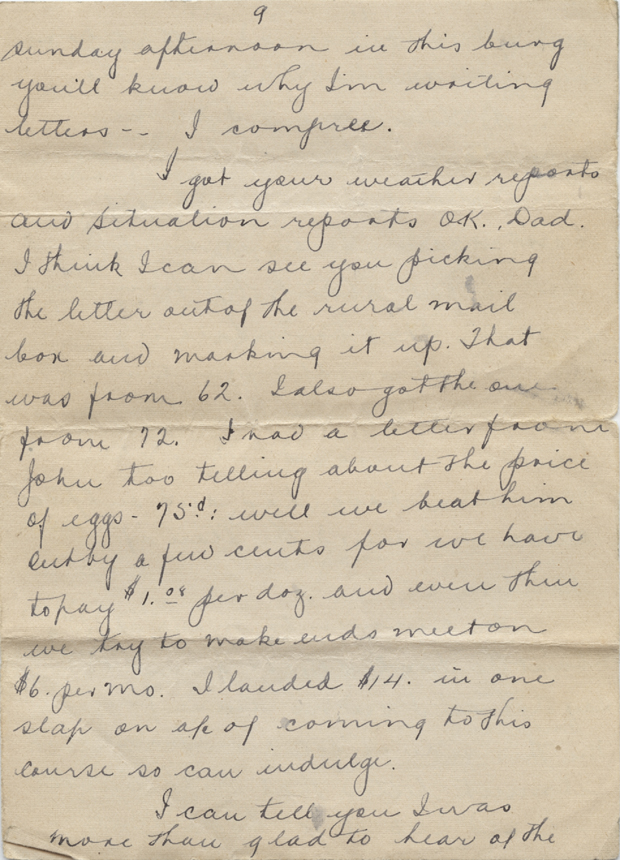 9
sunday afternoon in this burg
you'll know why I'm writing
letters -- I compree.
I got your weather reports
and situation reports OK., Dad.
I think I can see you picking
the letter out of the rural mail
box and marking it up. That
was from 62. I also got the one
from 72. I had a letter from
John too telling about the price
of eggs - 75¢: well we beat him
out by a few cents for we have
to pay $1.08 per doz. and even then
we try to make ends meet on
$6. per mo. I landed $14. in one
slap on a/c of coming to this
course so can indulge.
I can tell you I was
more than glad to hear of the